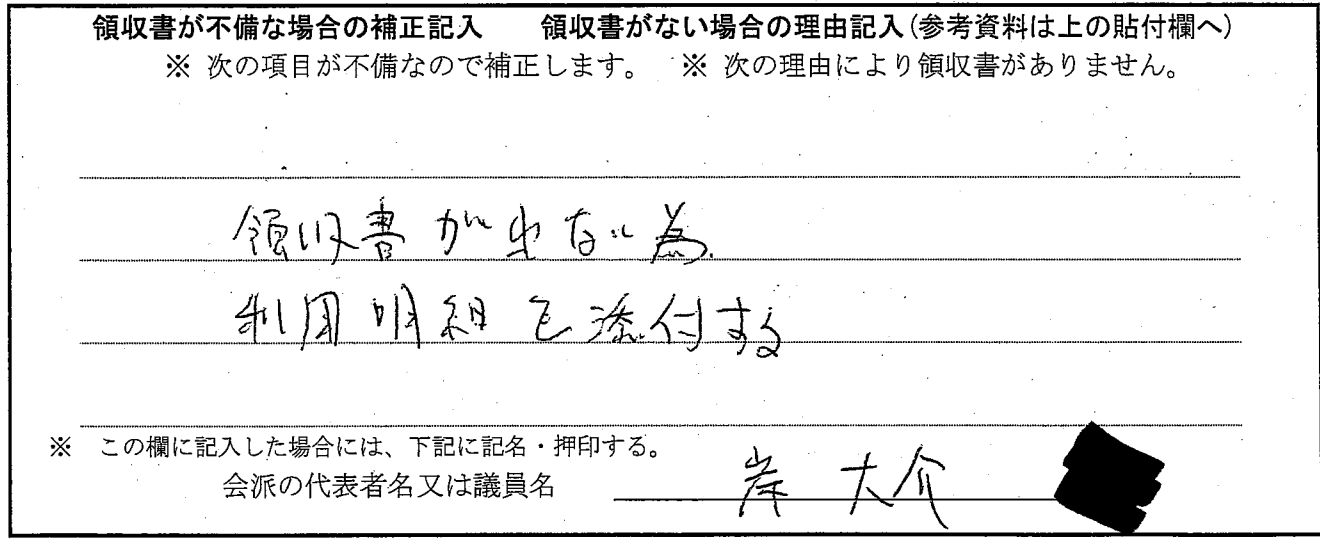 領収書が不備な場合の補正記入　領収書がない場合の理由記入(参考資料は上の貼付欄へ)
※ 次の項目が不備なので補正します。 ※ 次の理由により領収書がありません。
領収書が出ない為
利用明細を添付する
※ この欄に記入した場合には、下記に記名・押印する。
会派の代表者名又は議員名 岸 大介